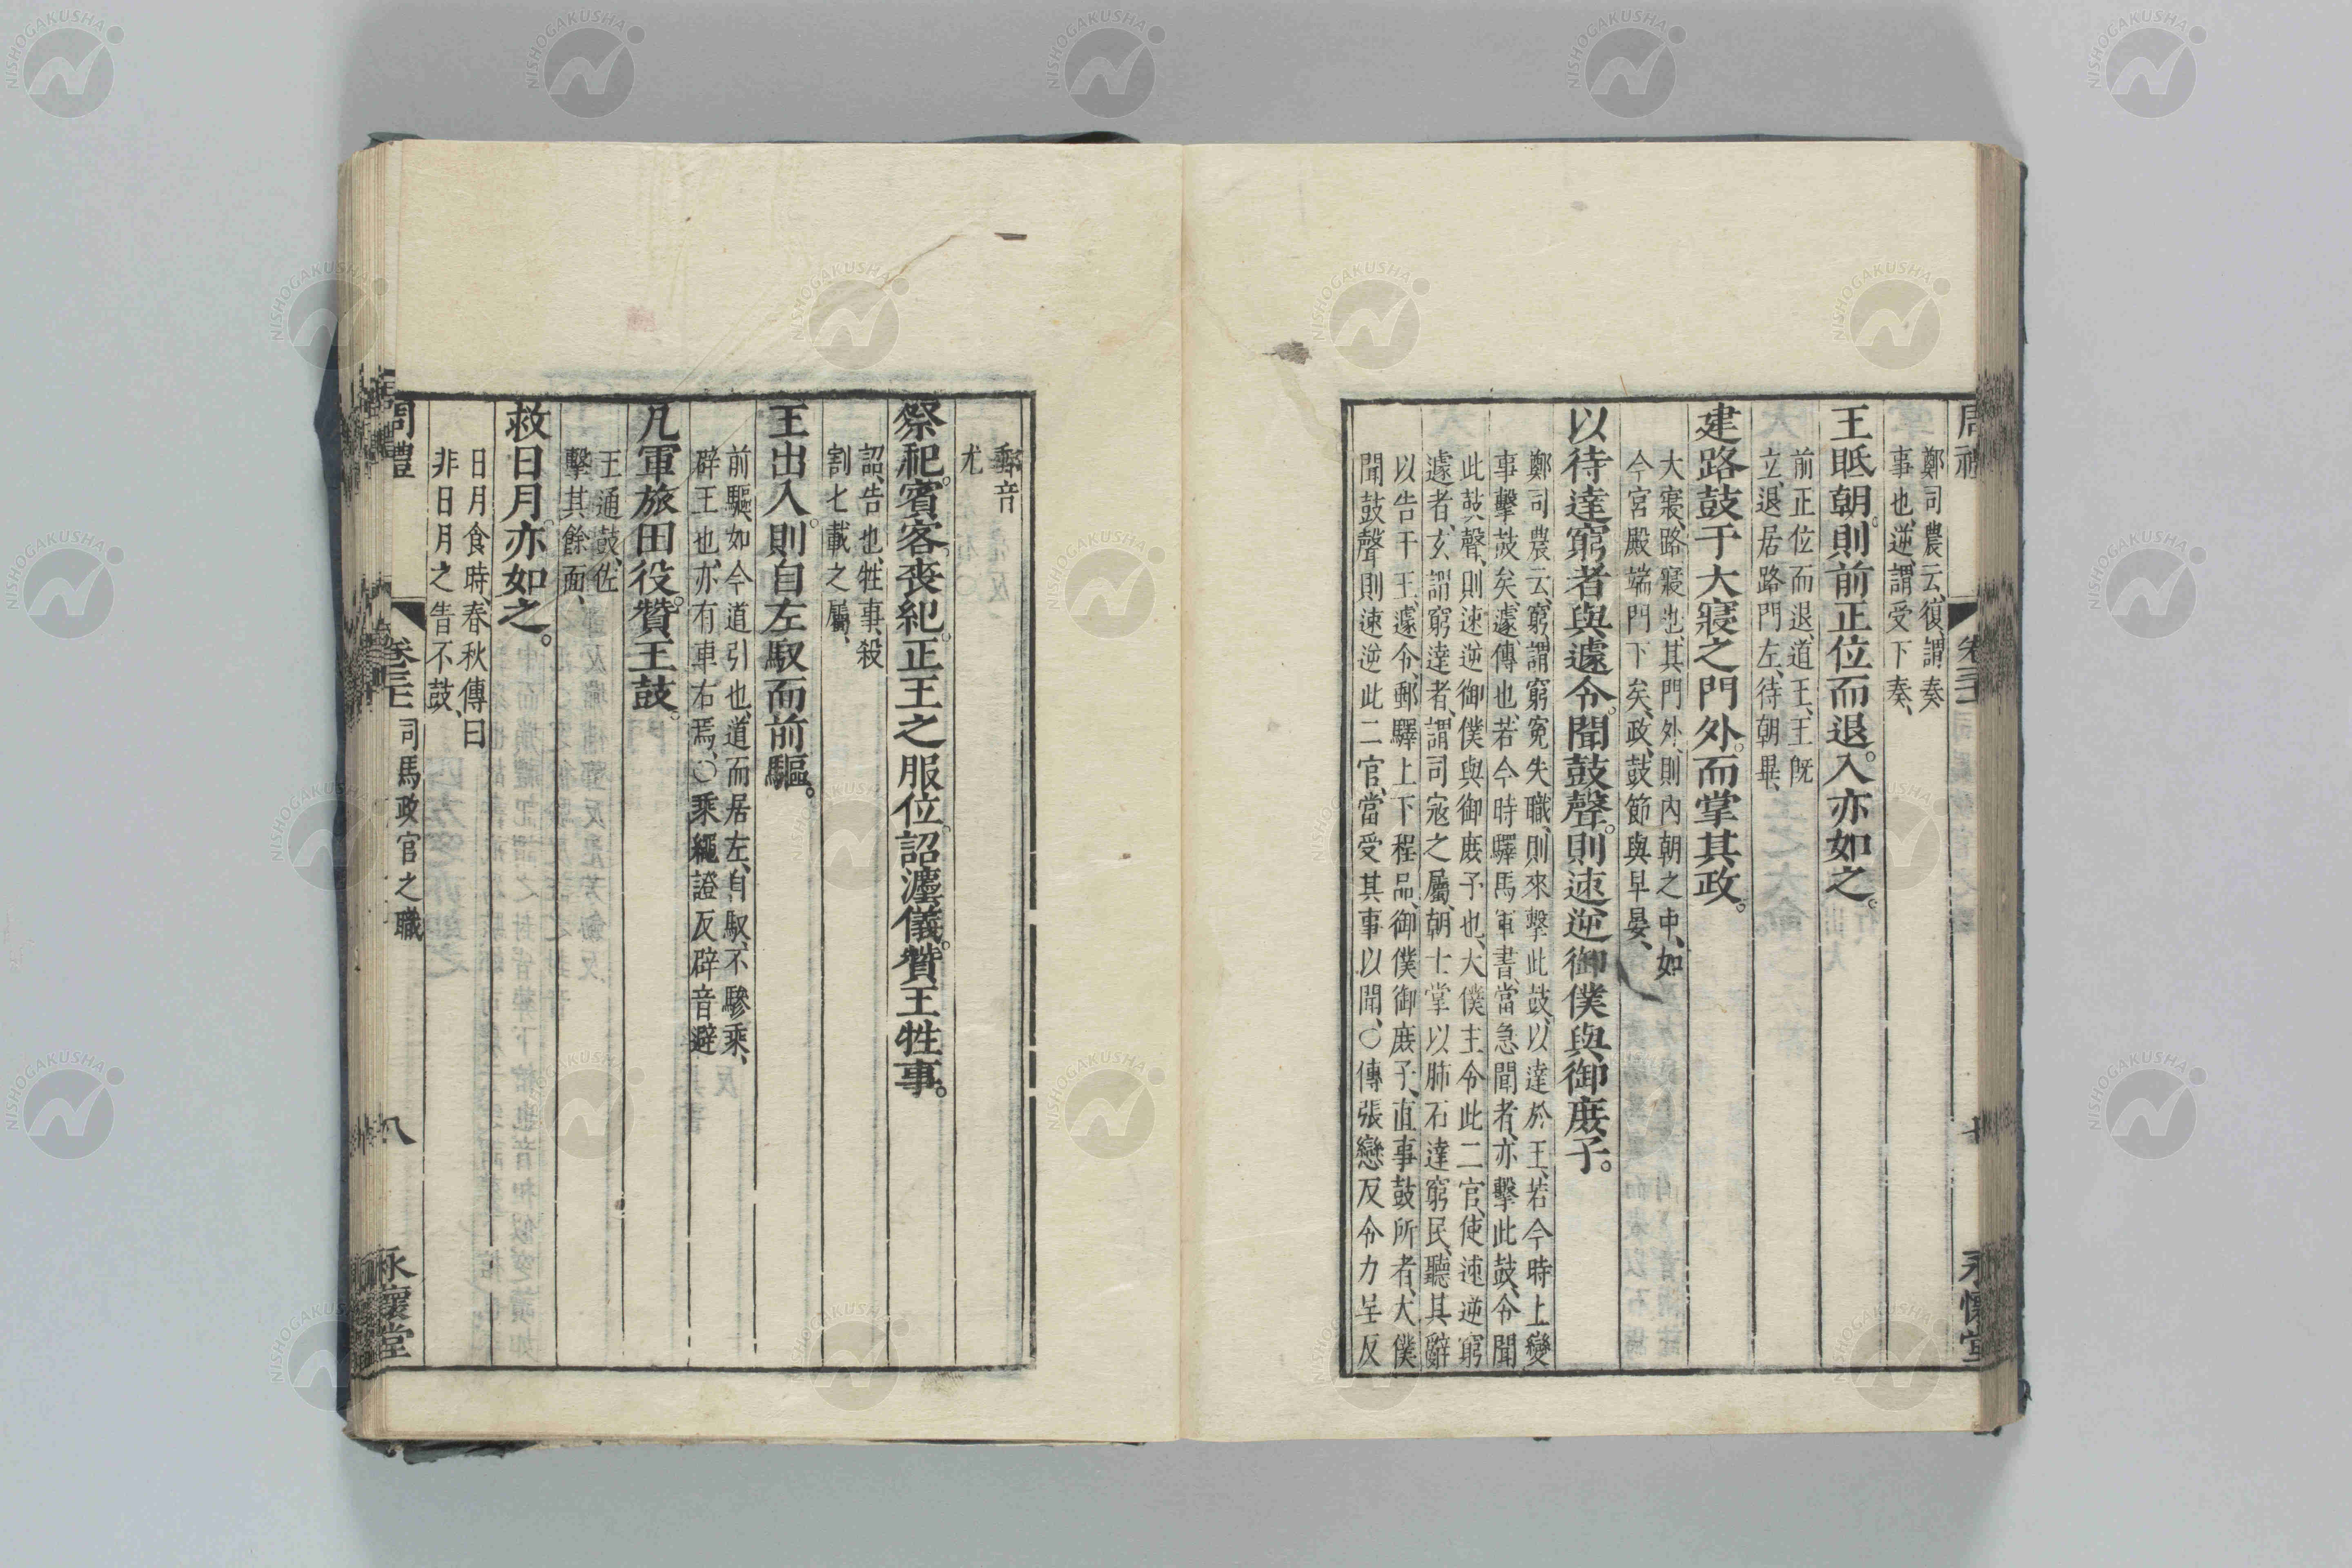 鄭司農云、復、謂奏
事也、逆、謂受下奏、
王眡朝。則前正位而退。入亦如之。
前正位而退、道王、王旣
立、退居路門左、待朝畢、
建路鼓于大寢之門外。而掌其政。
大寢、路寢也、其門外、則內朝之中、如
今宮殿端門下矣、政、鼓節與早晏、
以待達窮者與遽令。聞鼓聲。則速逆御僕與御庶子。
鄭司農云、窮、謂窮寃失職、則來擊此鼓、以達於王、若今時上變
事擊鼓矣、遽、傳也、若今時驛馬軍書、當急聞者、亦擊此鼓、令聞
此鼓聲、則速逆御僕與御庶子也、大僕主令此二官、使速逆窮
遽者、玄謂窮達者、謂司寇之屬、朝士掌以肺石達窮民、聽其辭
以告于王、遽令、郵驛上下程品、御僕御庶子、直事鼓所者、大僕
聞鼓聲則速逆此二官、當受其事以聞、○傳張戀反令力呈反
郵音
尤
祭祀。賓客。喪紀。正王之服位。詔灋儀。贊王牲事。
詔、告也、牲事、殺
割七載之屬、
王出入。則自左馭而前驅。
前驅、如今道引也、道而居左、自馭、不驂乘、
辟王也、亦有車右焉、○乘繩證反辟音避
凡軍旅田役。贊王鼓。
王通鼓、佐
擊其餘面、
救日月。亦如之。
日月食時、春秋傳曰
非日月之眚不鼓、
周禮 卷三十一 司馬政官之職 八 永懷堂
NISHOGAKUSHA